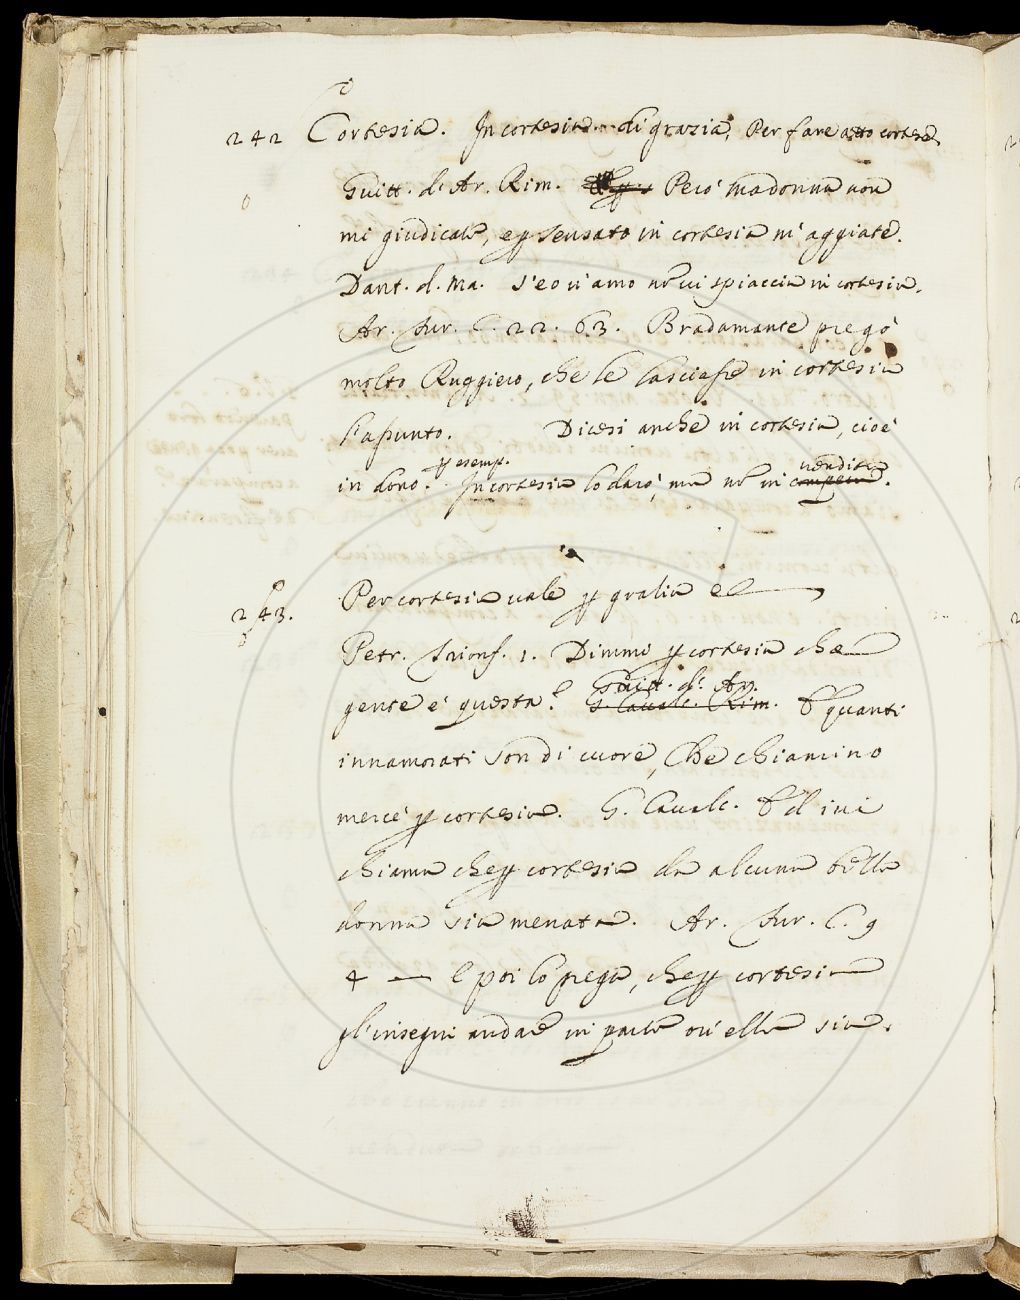 242 Cortesia. In cortesia di grazia, Per fare atto cortese
Guitt. d'Ar. Rim. Però Madonna non
mi giudicate, e p scusato in cortesia m'aggiate.
Dant. d. Ma. S'eo vi amo nō vi spiaccia in cortesia.
Ar. Fur. C. 22. 63. Bradamante pregò
molto Ruggiero, che le lasciasse in cortesia
l'assunto. Dicesi anche in cortesia, cioè
p esemp. vendita
in dono. In cortesia lo darò, ma nō in compera.
243. Per cortesia vale p gratia
Petr. Trionf. 1. Dimmi p cortesia che
gente è questa? Guitt. d'Ar.
G. Cavalc. Rim. E quanti
innamorati son di cuore, Che chiamino
mercè p cortesia. G. Cavalc. E d ivi
chiama che p cortesia da alcuna bella
donna sia menata. Ar. Fur. C. 9
4 — E poi lo prega, che p cortesia
gl'insegni andare in parte ov'ella sia.